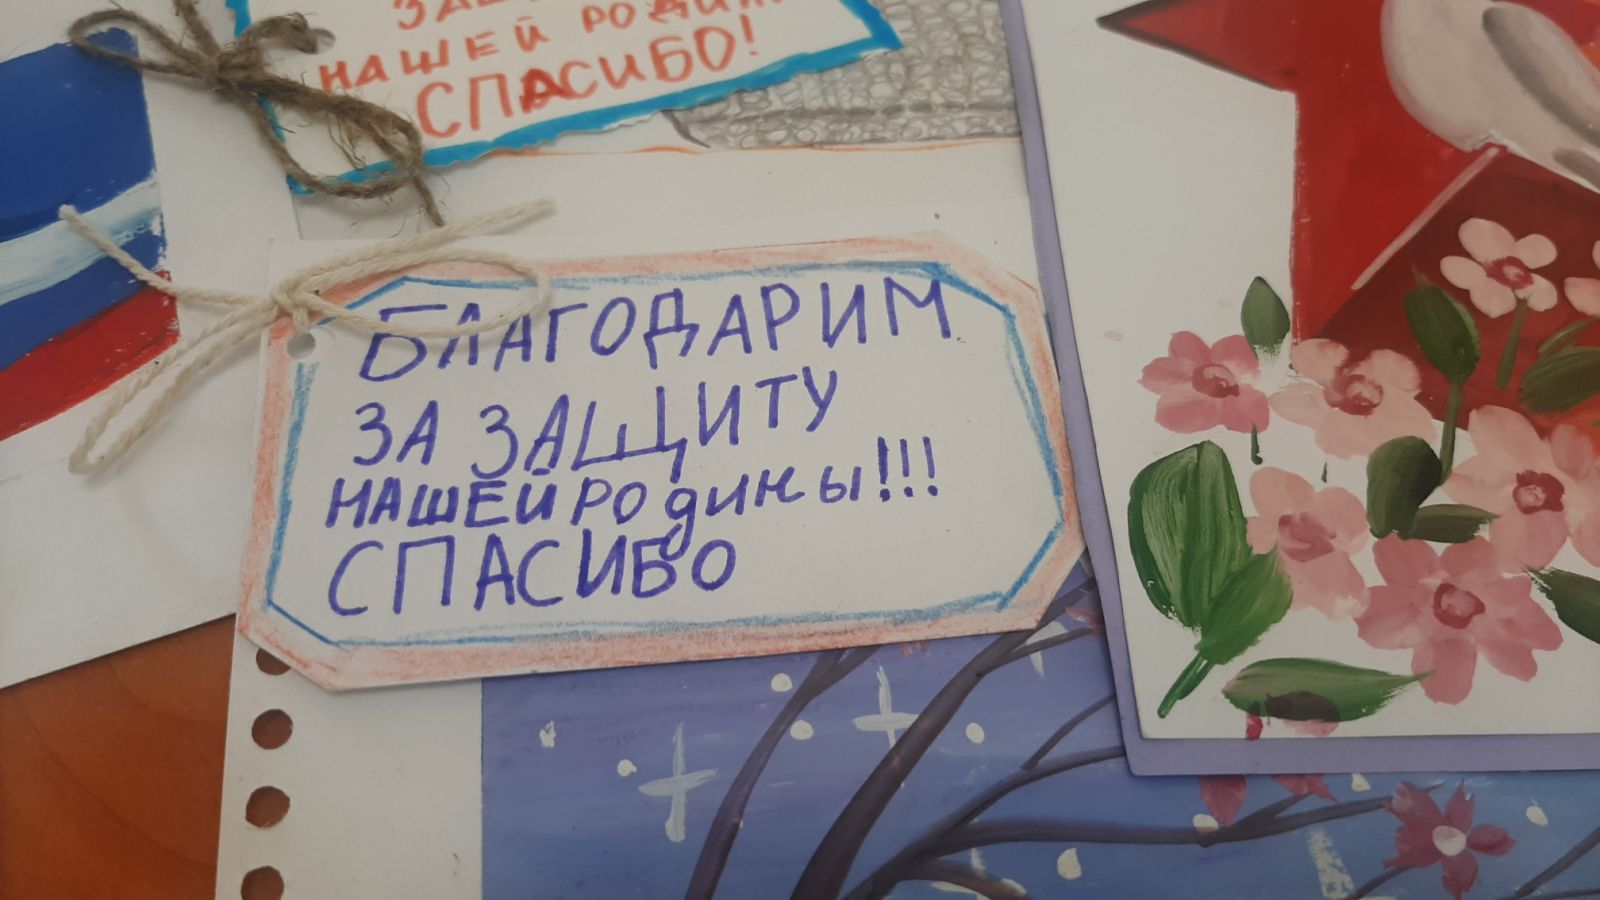 НАШЕЙ РОДИНЫ
СПАСИБО!
БЛАГОДАРИМ
ЗА ЗАЩИТУ
НАШЕЙ РОдиНЫ!!!
СПАСИБО